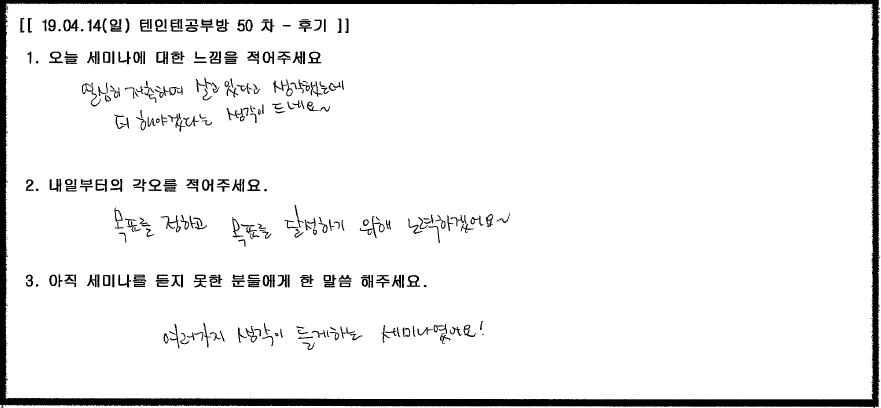 [[ 19.04.14(일) 텐인텐공부방 50 차 - 후기 ]]
1. 오늘 세미나에 대한 느낌을 적어주세요
열심히 저축하며 살고 있다고 생각했는데
더 해야겠다는 생각이 드네요~
2. 내일부터의 각오를 적어주세요.
목표를 정하고 목표를 달성하기 위해 노력하겠어요~
3. 아직 세미나를 듣지 못한 분들에게 한 말씀 해주세요.
여러가지 생각이 들게하는 세미나였어요!